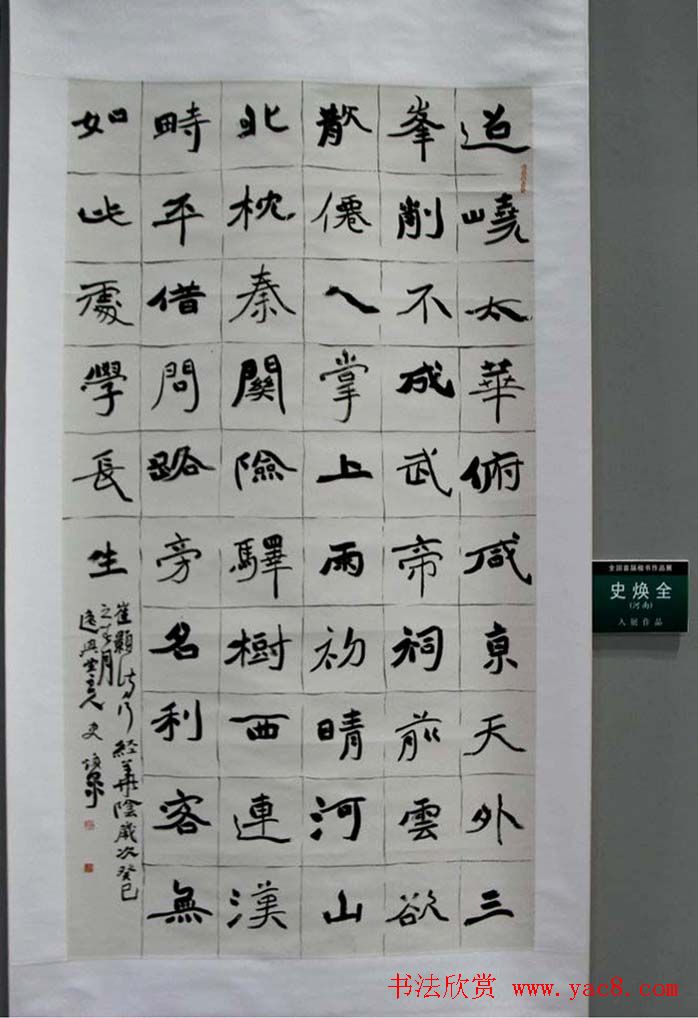 迢嶢太華俯咸京天外三
峯削不成武帝祠前雲欲
散僊人掌上雨初晴河山
北枕秦關險驛樹西連漢
畤平借問路旁名利客無
如此處學長生
崔顥詩行經華陰歲次癸巳
之月
逸興堂主人史焕全
全国首届楷书作品展
史焕全
(河南)
入展作品
书法欣赏 www.yac8.com